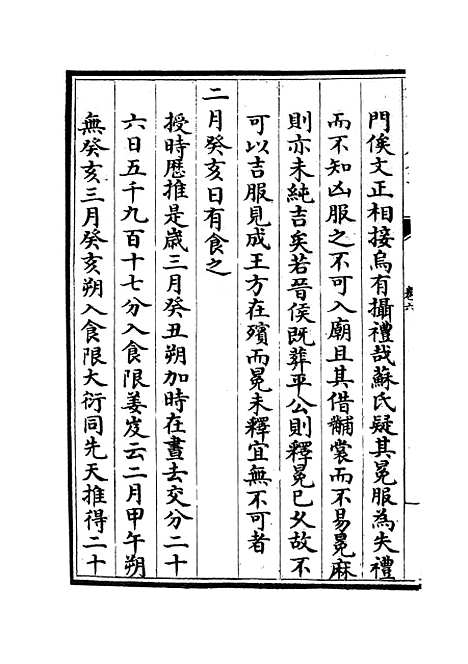 門俟文正相接烏有攝禮哉蘇氏疑其冕服為失禮
而不知凶服之不可入廟且其借黼裳而不易冕麻
則亦未純吉矣若晉侯既葬平公則釋冕已久故不
可以吉服見成王方在殯而冕未釋宜無不可者
二月癸亥日有食之
授時厯推是嵗三月癸丑朔加時在晝去交分二十
六日五千九百十七分入食限姜岌云二月甲午朔
無癸亥三月癸亥朔入食限大衍同先天推得二十
卷六